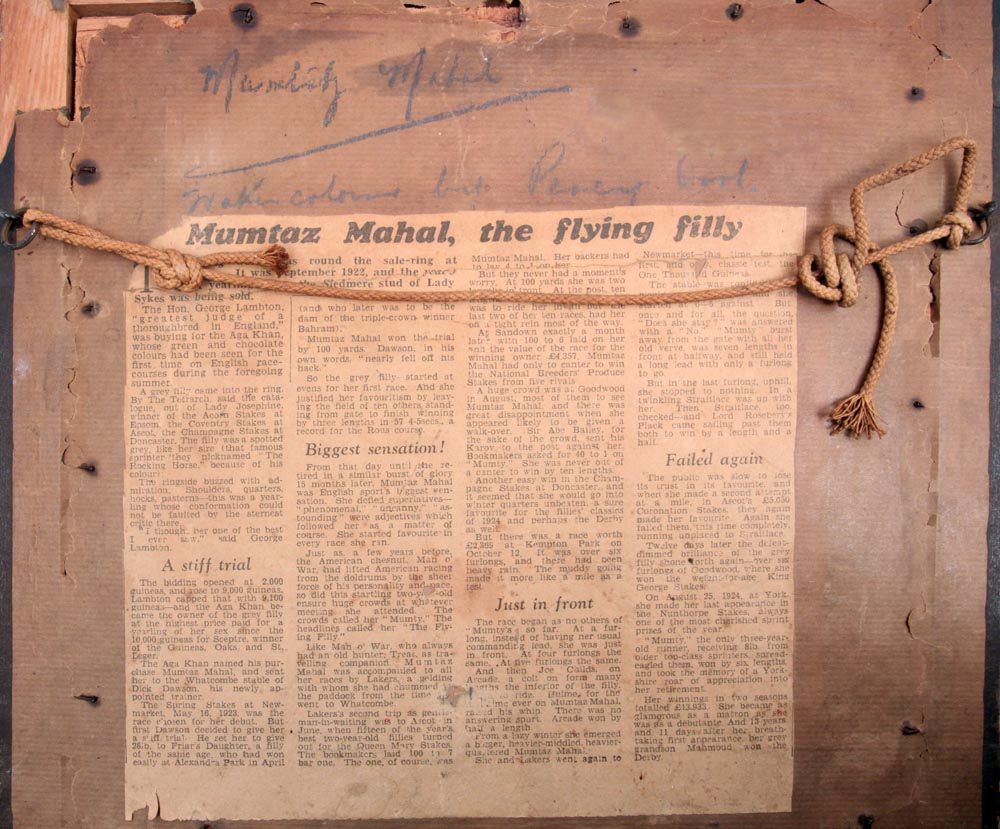 Mumtaz Mahal
Watercolour by Percy
Mumtaz Mahal, the flying filly
It was round the sale-ring at
September 1922, and the
Sledmere stud of Lady
Sykes was being sold.
The Hon. George Lambton,
"greatest judge of a
thoroughbred in England,"
was buying for the Aga Khan,
whose green and chocolate
colours had been seen for the
first time on English race-
courses during the foregoing
summer.
A grey filly came into the ring.
By The Tetrarch, said the cata-
logue, out of Lady Josephine,
winner of the Acorn Stakes at
Epsom, the Coventry Stakes at
Ascot, the Champagne Stakes at
Doncaster. The filly was a spotted
grey, like her sire (that famous
sprinter they nicknamed "The
Rocking Horse," because of his
colour).
The ringside buzzed with ad-
miration. Shoulders, quarters,
hocks, pasterns—this was a year-
ling whose conformation could
not be faulted by the sternest
critic there.
"I though. her one of the best
I ever saw," said George
Lambton.
A stiff trial
The bidding opened at 2,000
guineas, and rose to 9,000 guineas,
Lambton capped that with 9,100
guineas—and the Aga Khan be-
came the owner of the grey filly
at the highest price paid for a
yearling of her sex since the
10,000 guineas for Sceptre, winner
of the Guineas, Oaks, and St.
Leger.
The Aga Khan named his pur-
chase Mumtaz Mahal, and sent
her to the Whatcombe stable of
Dick Dawson, his newly ap-
pointed trainer.
The Spring Stakes at New-
market, May 16, 1923, was the
race chosen for her debut. But
first Dawson decided to give her
a stiff trial. He set her to give
28lb. to Friar's Daughter, a filly
of the same age, who had won
easily at Alexandra Park in April
(and who later was to be the
dam of the triple-crown winner
Bahram).
Mumtaz Mahal won the trial
by 100 yards. Dawson, in his
own words "nearly fell off his
hack."
So the grey filly started at
evens for her first race. And she
justified her favouritism by leav-
ing the field of ten others, stand-
ing from gate to finish winning
by three lengths in 57 4-5secs., a
record for the Rous course.
Biggest sensation!
From that day until she re-
tired in a similar burst of glory
15 months later, Mumtaz Mahal
was English sport's biggest sen-
sation. She defied superlatives—
"phenomenal," "uncanny," "as-
tounding" were adjectives which
followed her as a matter of
course. She started favourite in
every race she ran.
Just as, a few years before,
the American chesnut, Man o'
War, had lifted American racing
from the doldrums by the sheer
force of his personality and pace,
so did this startling two-year-old
ensure huge crowds at whatever
meeting she attended. The
crowds called her "Mumty." The
headlines called her "The Fly-
ing Filly."
Like Man o' War, who always
had an old hunter, Treat, as tra-
velling companion, Mumtaz
Mahal was accompanied to all
her races by Lakers, a gelding
with whom she had chummed in
the paddock from the time she
went to Whatcombe.
Lakers's second trip as gentle-
man-in-waiting was to Ascot in
June, when fifteen of the year's
best two-year-old fillies turned
out for the Queen Mary Stakes.
The bookmakers laid 100 to 7
bar one. The one, of course, was
Mumtaz Mahal. Her backers had
to lay 4 to 1 on her.
But they never had a moment's
worry. At 100 yards she was two
in front. At the post, ten
was to ride her in
last two of her ten races, had her
on a tight rein most of the way.
At Sandown exactly a month
later with 100 to 6 laid on her
and the value of the race for the
winning owner £4,357, Mumtaz
Mahal had only to canter to win
the National Breeders' Produce
Stakes from five rivals
A huge crowd was at Goodwood
in August, most of them to see
Mumtaz Mahal, and there was
great disappointment when she
appeared likely to be given a
walk-over. Sir Abe Bailey, for
the sake of the crowd, sent his
Karov to the post against her.
Bookmakers asked for 40 to 1 on
"Mumty." She was never out of
a canter to win by ten lengths.
Another easy win in the Cham-
pagne Stakes at Doncaster, and
it seemed that she would go into
winter quarters unbeaten, sure
favourite for the fillies' classics
of 1924 and perhaps the Derby
as well.
But there was a race worth
at Kempton Park on
October 12. It was over six
furlongs, and there had been
heavy rain. The muddy going
made it more like a mile as a
test.
Just in front
The race began as no others of
"Mumty's" so far. At a fur-
long, instead of having her usual
commanding lead, she was just
in front. At four furlongs the
same. At five furlongs the same.
And then Joe Childs, on
Arcade, a colt on form many
lengths the inferior of the filly,
ride. Hulme, for the
time ever on Mumtaz Mahal,
his whip. There was no
answering spurt. Arcade won by
half a length
From a hazy winter she emerged
a bigger, heavier-middled, heavier-
quartered Mumtaz Mahal.
She and Lakers went again to
Newmarket—this time for
first, and classic test, the
One Thousand Guineas.
The stable was
against But
once and for all the question,
"Does she stay?" was answered
with a "No." "Mumty" burst
away from the gate with all her
old verve, was seven lengths in
front at halfway, and still held
a long lead with only a furlong
to go.
But in the last furlong, uphill,
she stopped to nothing. In a
twinkling Straitlace was up with
her. Then Straitlace, too,
checked—and Lord Rosebery's
Plack came sailing past them
both to win by a length and a
half.
Failed again
The public was slow to lose
its belief in its favourite, and
when she made a second attempt
at a mile, in Ascot's £5,030
Coronation Stakes, they again
made her favourite. Again she
failed them, this time completely,
running unplaced to Straitlace.
Twelve days later the defeat-
dimmed brilliance of the grey
filly shone forth again—over six
furlongs of Goodwood, where she
won the weight-for-age King
George Stakes.
On August 25, 1924, at York,
she made her last appearance in
the Nunthorpe Stakes, always
one of the most cherished sprint
prizes of the year.
"Mumty," the only three-year-
old runner, receiving 8lb. from
older top-class sprinters, spread-
eagled them, won by six lengths,
and took the memory of a York-
shire roar of appreciation into
her retirement.
Her winnings in two seasons
totalled £13,933. She became as
glamorous as a matron as she
was as a débutante. And 12 years
and 11 days after her breath-
taking first appearance, her grey
grandson Mahmoud won the
Derby.